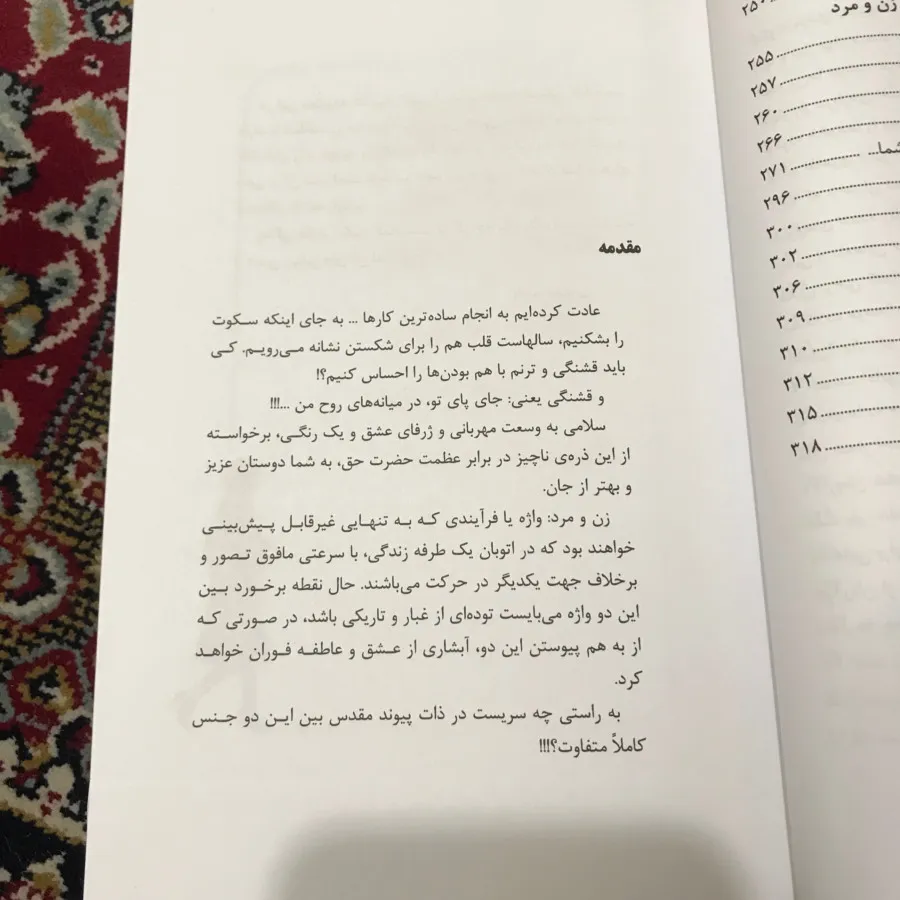 مقدمه
عادت کرده‌ایم به انجام ساده‌ترین کارها ... به جای اینکه سکوت
را بشکنیم، سالهاست قلب هم را برای شکستن نشانه می‌رویم. کی
باید قشنگی و ترنم با هم بودن‌ها را احساس کنیم؟!
و قشنگی یعنی: جای پای تو، در میانه‌های روح من ...!!!
سلامی به وسعت مهربانی و ژرفای عشق و یک رنگی، برخواسته
از این ذره‌ی ناچیز در برابر عظمت حضرت حق، به شما دوستان عزیز
و بهتر از جان.
زن و مرد: واژه یا فرآیندی که به تنهایی غیرقابل پیش‌بینی
خواهند بود که در اتوبان یک طرفه زندگی، با سرعتی مافوق تصور و
برخلاف جهت یکدیگر در حرکت می‌باشند. حال نقطه برخورد بین
این دو واژه می‌بایست توده‌ای از غبار و تاریکی باشد، در صورتی که
از به هم پیوستن این دو، آبشاری از عشق و عاطفه فوران خواهد
کرد.
به راستی چه سریست در ذات پیوند مقدس بین این دو جنس
کاملاً متفاوت؟!!!
زن و مرد
۲۵۵
۲۵۷
۲۶۰
۲۶۶
شما... ۲۷۱
۲۹۶
۳۰۰
۳۰۲
۳۰۶
۳۰۹
۳۱۰
۳۱۲
۳۱۵
۳۱۸